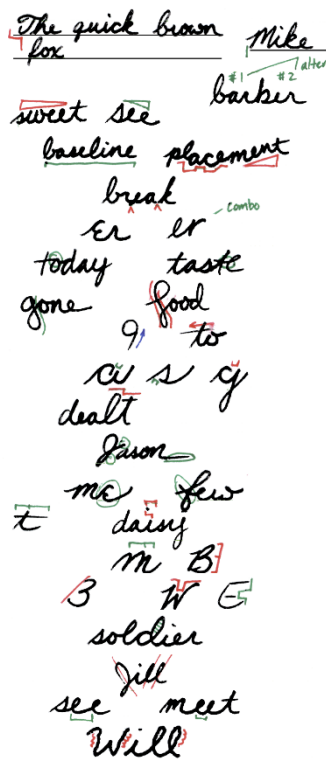 The quick brown
fox
Mike
alter
#1 #2
barber
sweet see
baseline placement
break
combo
Er er
today taste
gone food
9 to
a s g
dealt
Jason
me few
t daisy
m B
3 W E
soldier
Jill
see meet
Will